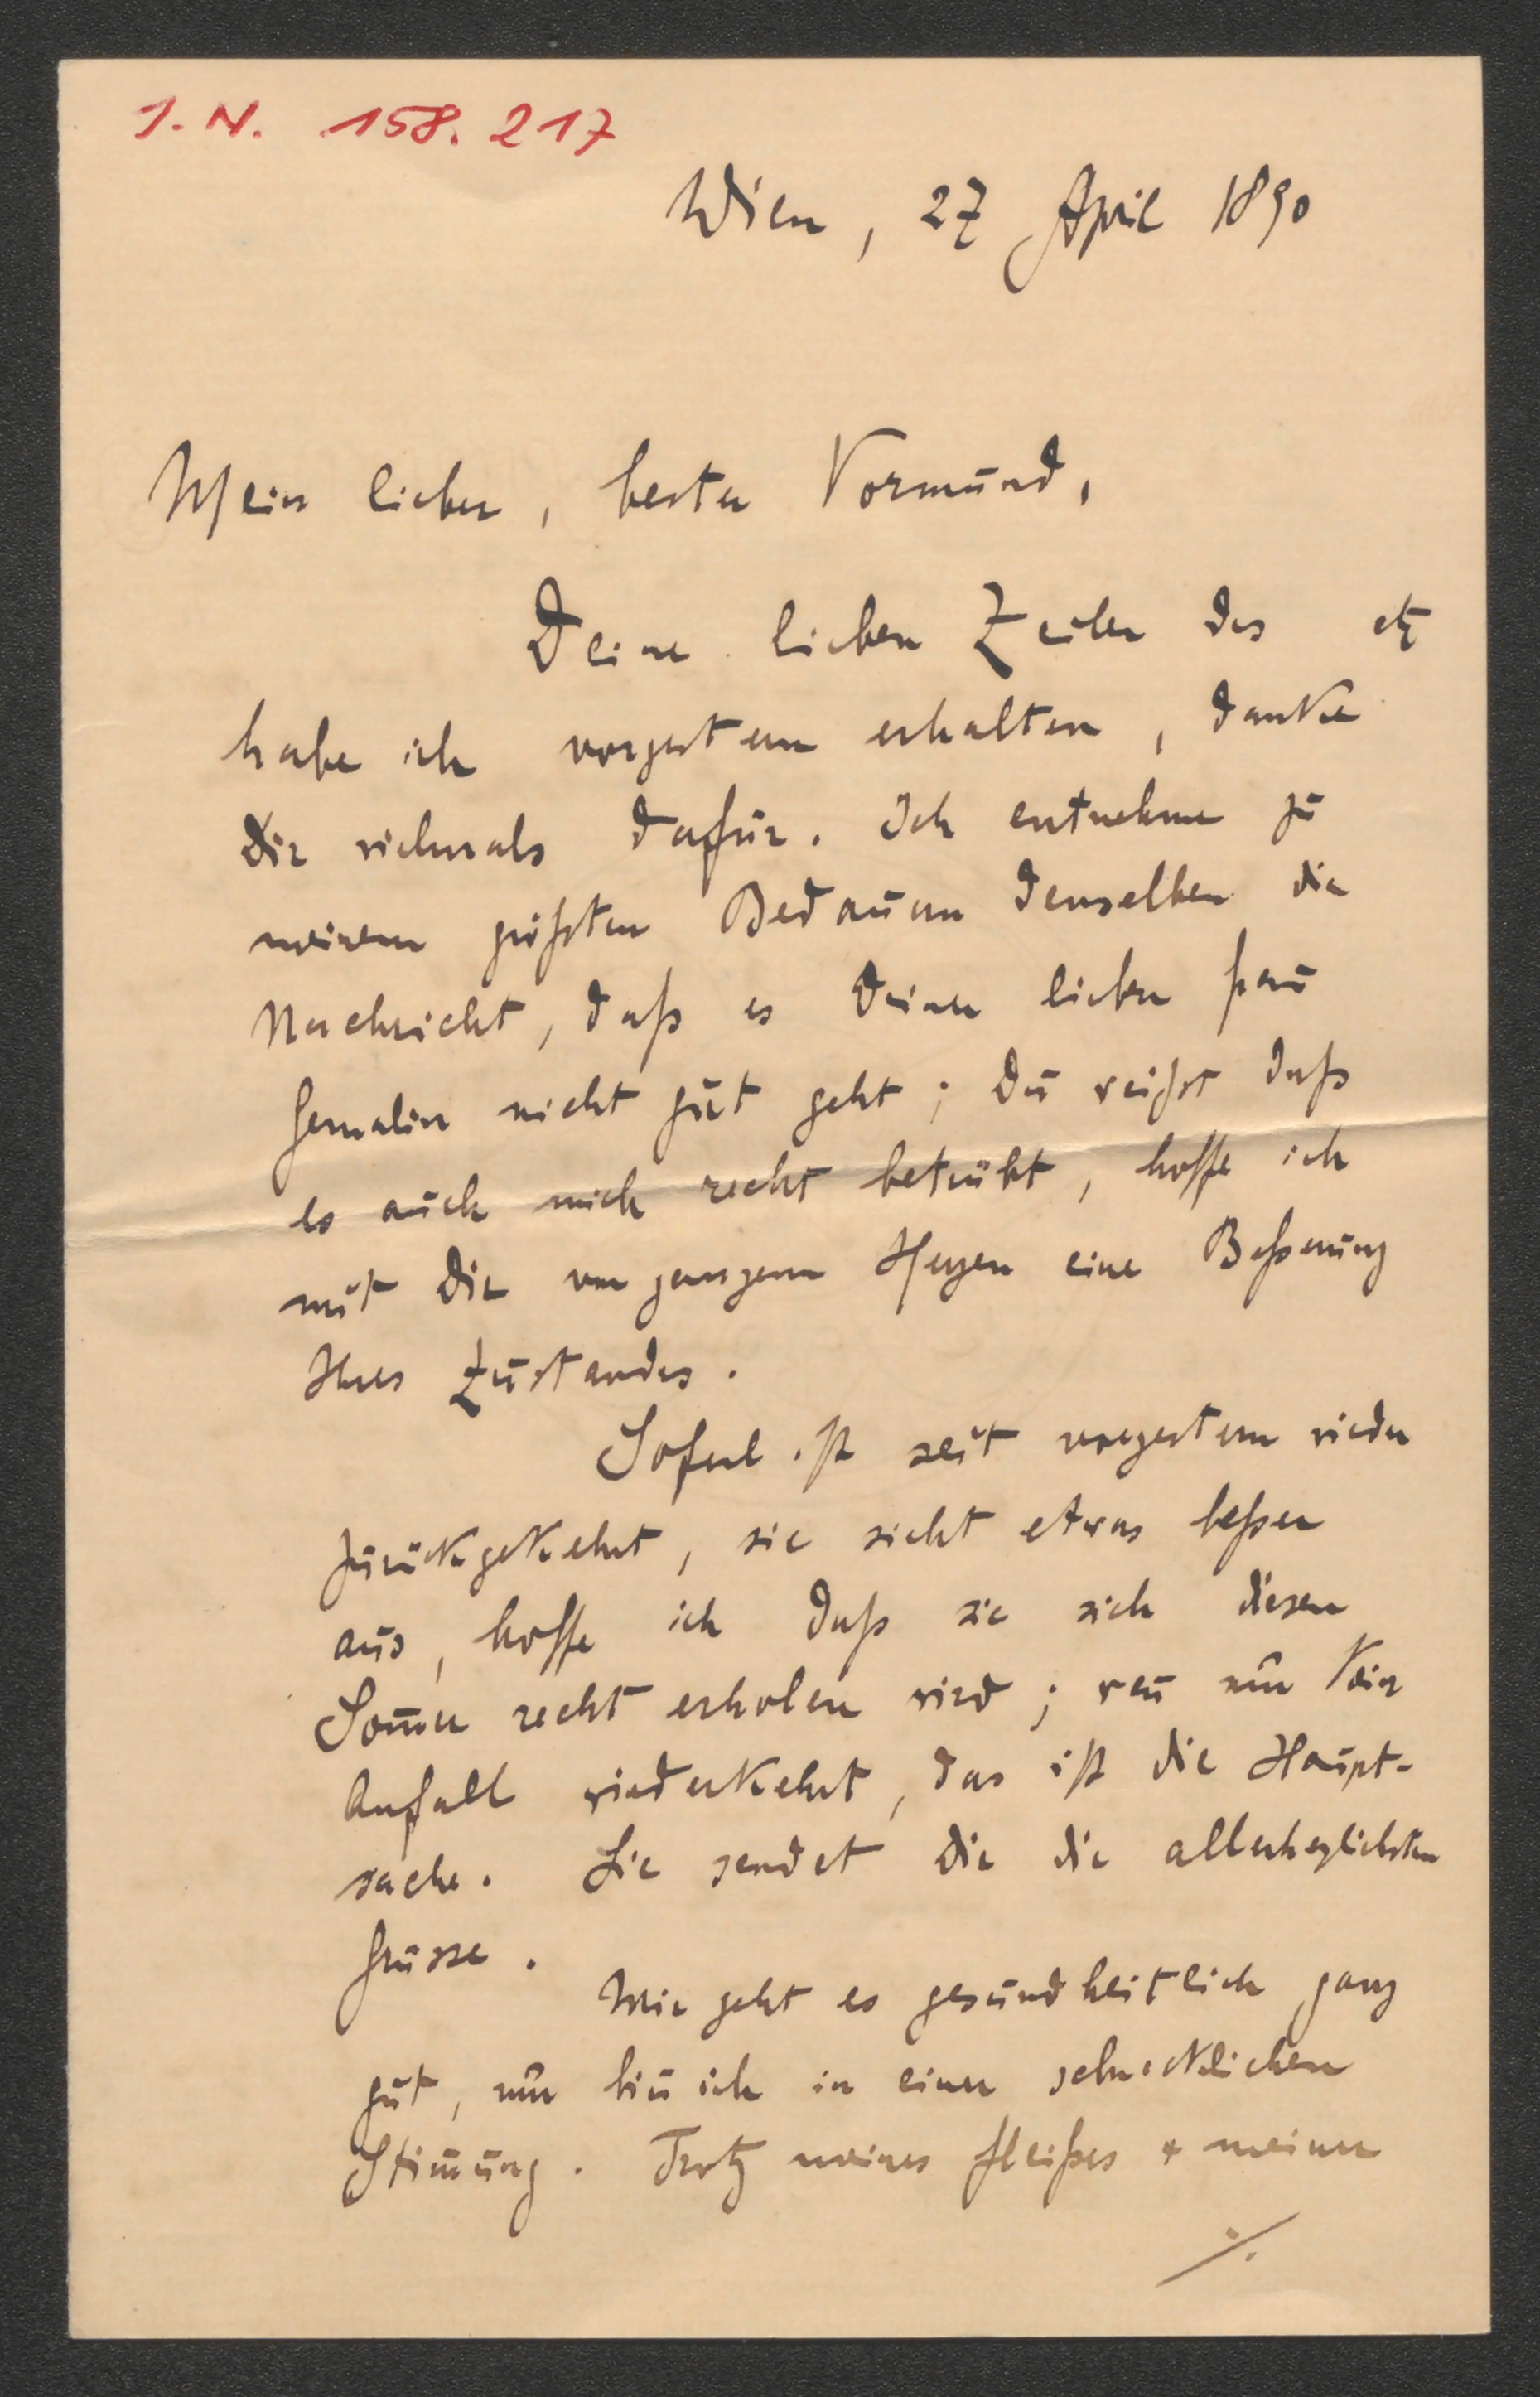 I.N. 158.217
Wien, 27 April 1890
Mein lieber, bester Vormund,
Deine lieben Zeilen des
habe ich vorgestern erhalten, danke
Dir vielmals dafür. Ich entnehme zu
meinem größten Bedauern denselben die
Nachricht, daß es Deiner lieben Frau
Gemalin nicht gut geht; Du weißst daß
es auch mich recht betrübt, hoffe ich
mit Dir von ganzem Herzen eine Beßerung
Ihres Zustandes.
Soferl ist seit vorgestern wieder
zurückgekehrt, sie sieht etwas beßer
aus, hoffe ich daß sie sich diesen
Som̄er recht erholen wird; wen̄ nur kein
Anfall wiederkehrt, das ist die Haupt-
sache. Sie sendet Dir die allerherzlichsten
Grüsse.
Mir geht es gesundheitlich ganz
gut, nur bin̄ ich in einer schrecklichen
Stim̄ung. Trotz meines Fleißes + meiner
./.